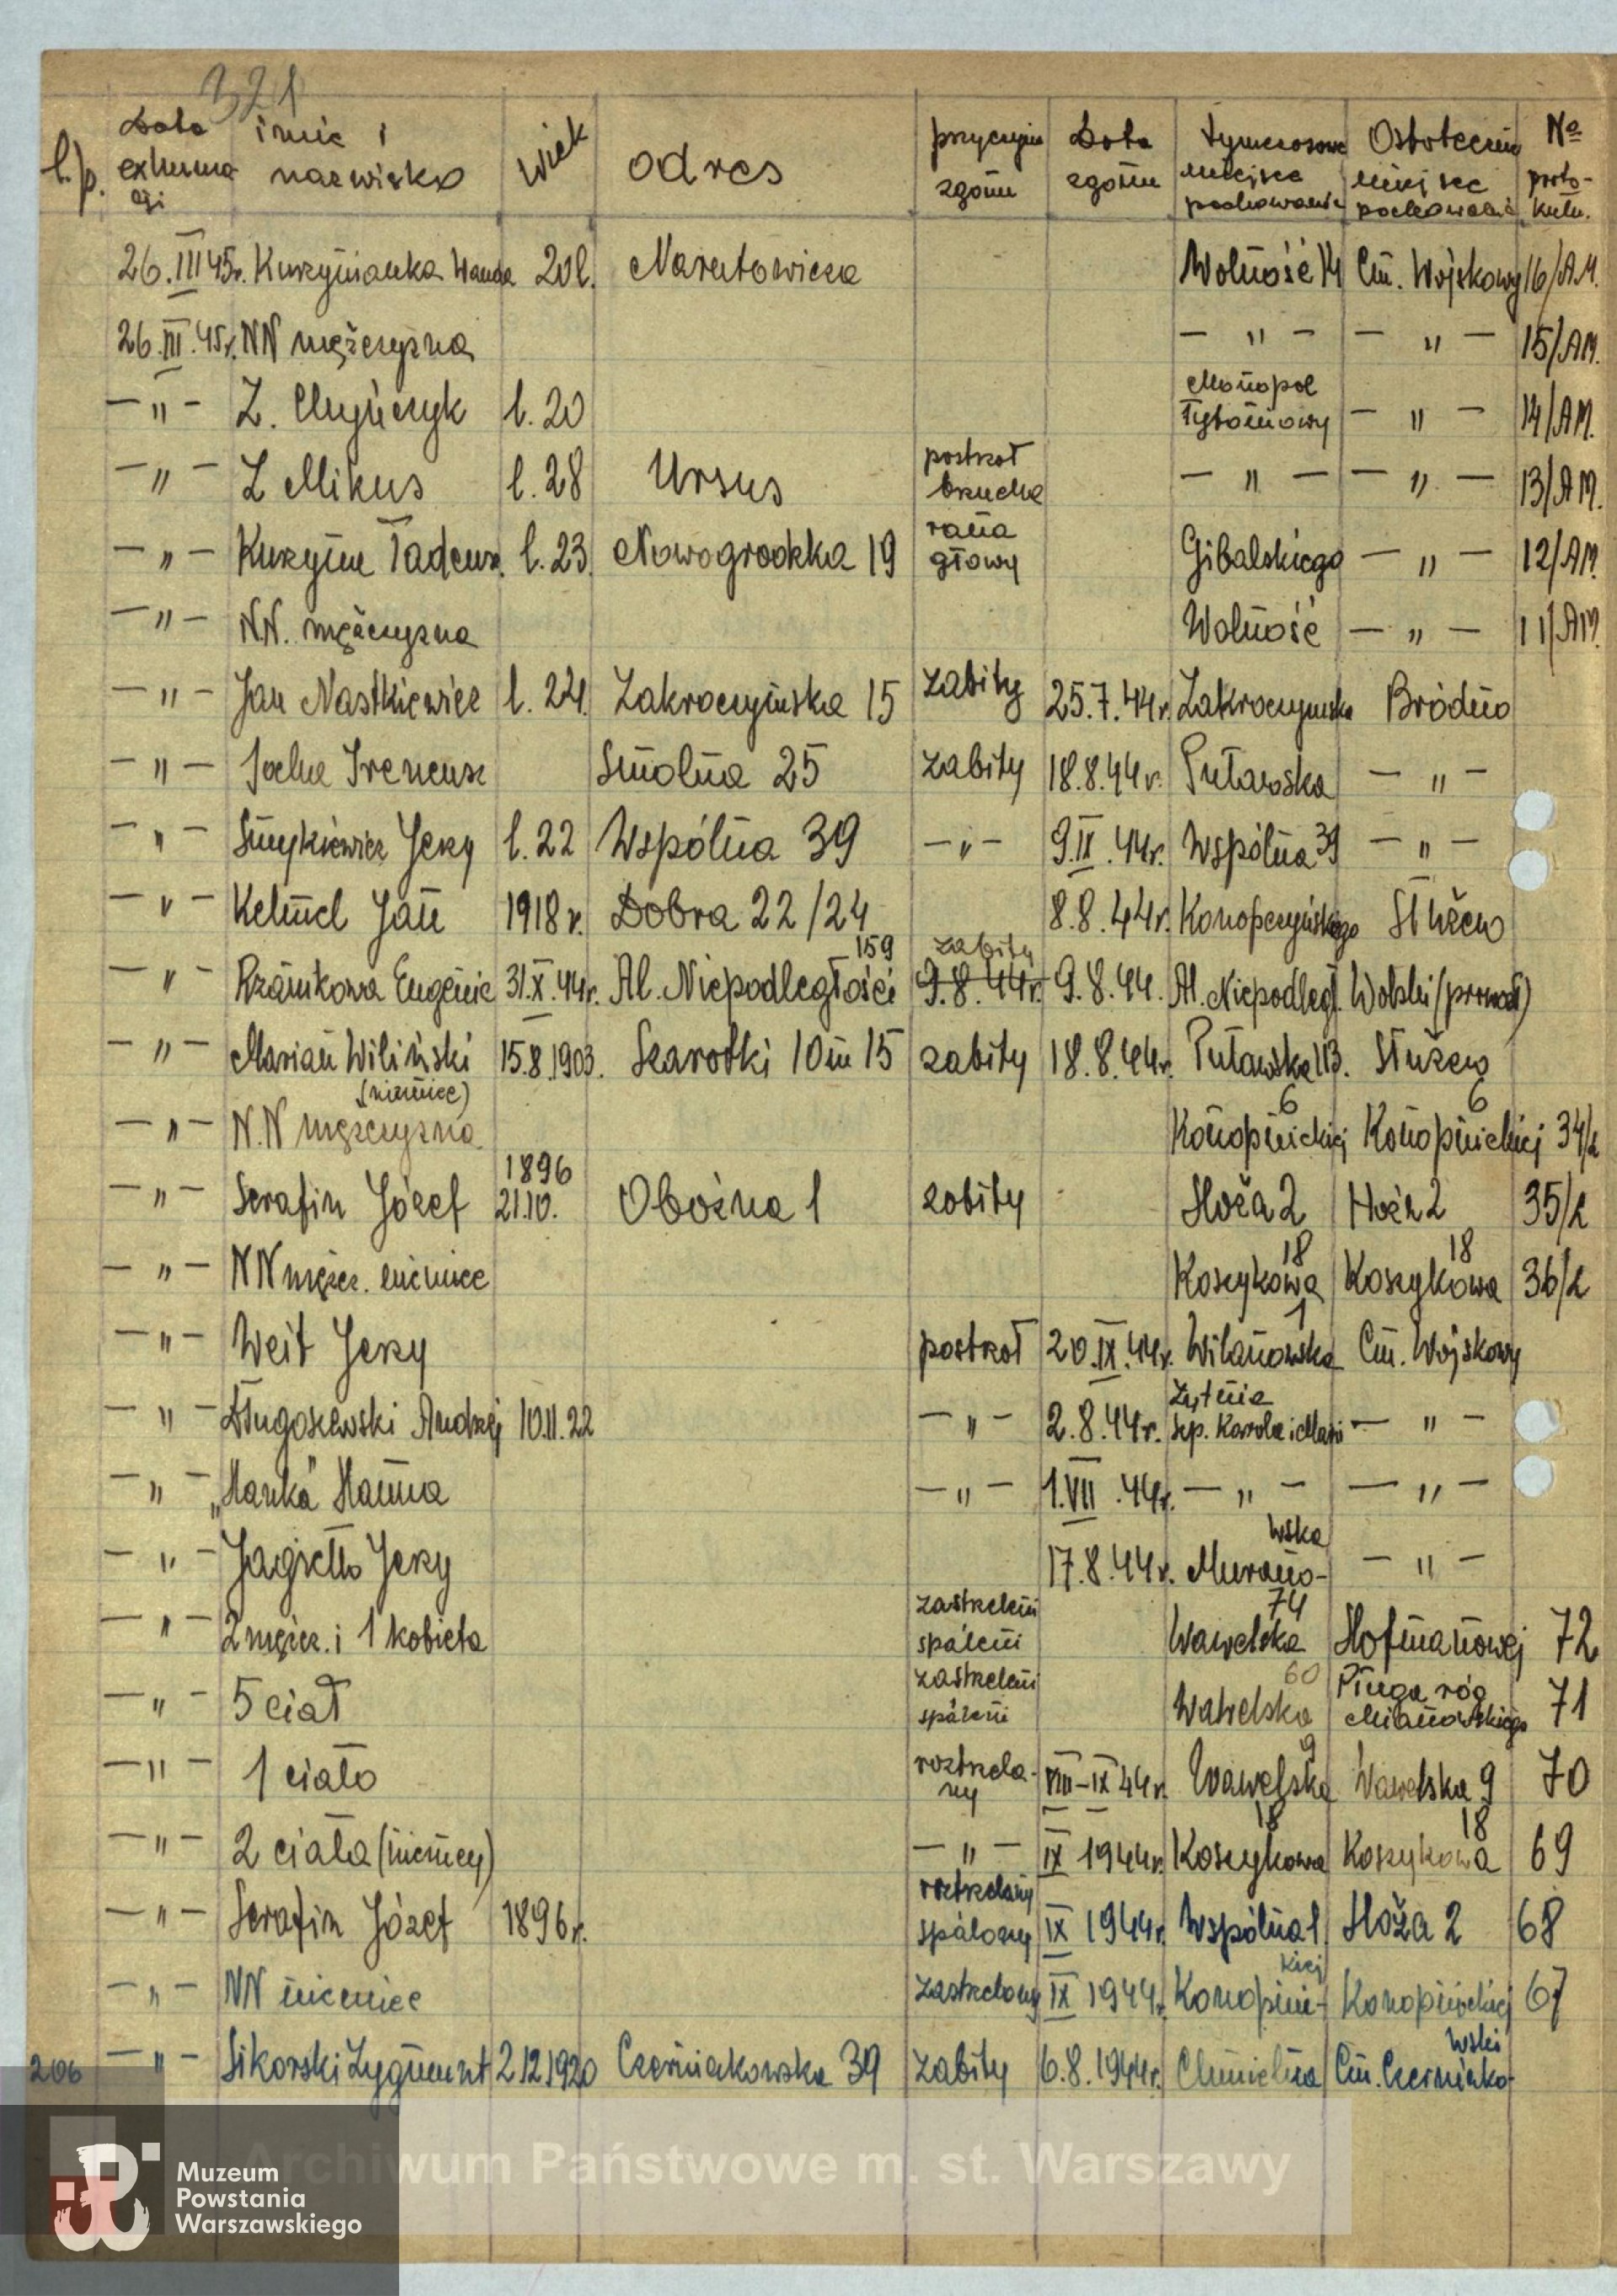 321
l.p. Data exhumacji imię i nazwisko wiek adres przyczyna zgonu Data zgonu tymczasowe miejsce pochowania Ostateczne miejsce pochowania No protokułu.
26.III 45r. Kurzymianka Wanda 20l. Narutowicza Wolność 14 Cm. Wojskowy 16/AM.
26.III.45r. NN mężczyzna — " — — " — 15/AM.
— " — Z. l. 20 Monopol Tytoniowy — " — 14/AM.
— " — Z Mikus l. 28 Ursus postrzał brzucha — " — — " — 13/AM.
— " — Kurzym Tadeusz l. 23. Nowogrodzka 19 rana głowy Gibalskiego — " — 12/AM.
— " — N.N. mężczyzna Wolność — " — 11/AM.
— " — Jan Nastkiewicz l. 24. Zakroczymska 15 zabity 25.7.44r. Zakroczymska Bródno
— " — Socha Ireneusz Smolna 25 zabity 18.8.44r. Puławska — " —
— " — Smykiewicz Jerzy l. 22 Wspólna 39 — " — 9.IX.44r. Wspólna 39 — " —
— " — Kelmel Jan 1918 r. Dobra 22/24 8.8.44r. Konopczyńskiego Służew
— " — Rzamkowa Eugenie 31.X.44r. Al. Niepodległości 159 zabity 9.8.44r. 9.8.44. Al. Niepodległ. Wolski
— " — Marian Wiliński 15.8.1903. Szarotki 10 m 15 zabity 18.8.44r. Puławska 113. Służew
— " — N.N mężczyzna (niemiec) Konopnickiej 6 Konopnickiej 6 34/L
— " — Serafin Józef 1896 21.10. Oboźna 1 zabity Hoża 2 Hoża 2 35/L
— " — NN mężcz. niemiec Koszykowa 18 Koszykowa 18 36/L
— " — Weit Jerzy postrzał 20.IX.44r. Wilanowska 1 Cm. Wojskowy
— " — Długoszewski Andrzej 10.11.22 — " — 2.8.44r. Żytnia Szp. Karola i Marii — " —
— " — „Hanka" Hanna — " — 1.VII.44r. — " — — " —
— " — Jagiełło Jerzy 17.8.44r. Muranowska — " —
— " — 2 mężcz. i 1 kobieta zastrzeleni spaleni Wawelska 74 Hofmanowej 72
— " — 5 ciał zastrzeleni spaleni Wawelska 60 Pługa róg Mianowskiego 71
— " — 1 ciało roztrzelany VIII-IX 44r. Wawelska 9 Wawelska 9 70
— " — 2 ciała (niemcy) — " — IX 1944r. Koszykowa 18 Koszykowa 18 69
— " — Serafin Józef 1896 r. roztrzelany spalony IX 1944r. Wspólna 1. Hoża 2 68
— " — NN niemiec zastrzelony IX 1944r. Konopnickiej Konopnickiej 67
206 — " — Sikorski Zygmunt 2.12.1920 Czerniakowska 39 zabity 6.8.1944r. Chmielna Cm. Czerniakowski
Archiwum Państwowe m. st. Warszawy
Muzeum
Powstania
Warszawskiego